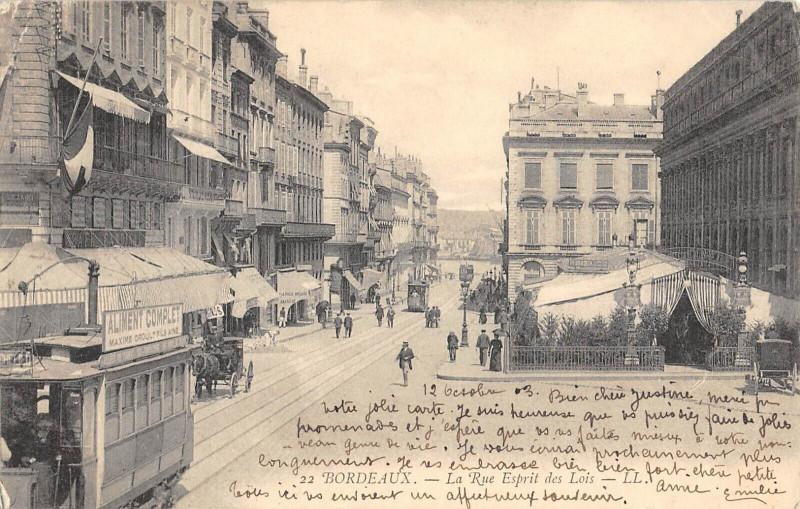 ALIMENT COMPLET
MAXIME GROULT FILS AINÉ
12 octobre 03. Bien chère Justine, merci pr
votre jolie carte. Je suis heureuse que vs puissiez faire de jolies
promenades et j'espère que vs vs faites mieux à votre nou-
veau genre de vie. Je vous écrirai prochainement plus
longuement. Je vs embrasse bien, bien fort, chère petite
22 BORDEAUX. — La Rue Esprit des Lois — LL.
Anne - Emilie
Tous ici vs envoient un affectueux souvenir.